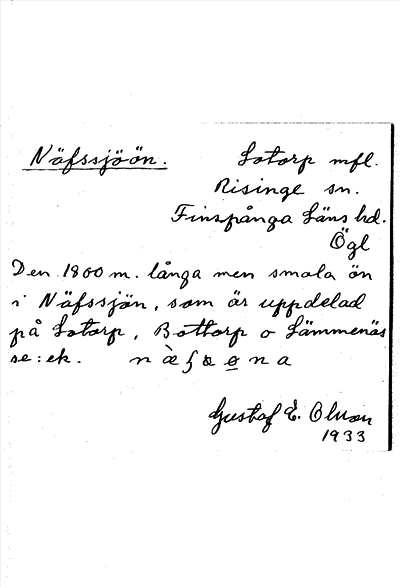 Näfssjöön.
Lotorp mfl.
Risinge sn.
Finspånga Läns hd.
Ögl
Den 1800 m. långa men smala ön
i Näfssjön, som är uppdelad
på Lotorp, Bottorp o Lämmenäs
se: ek.
Gustaf E. Olsson
1933